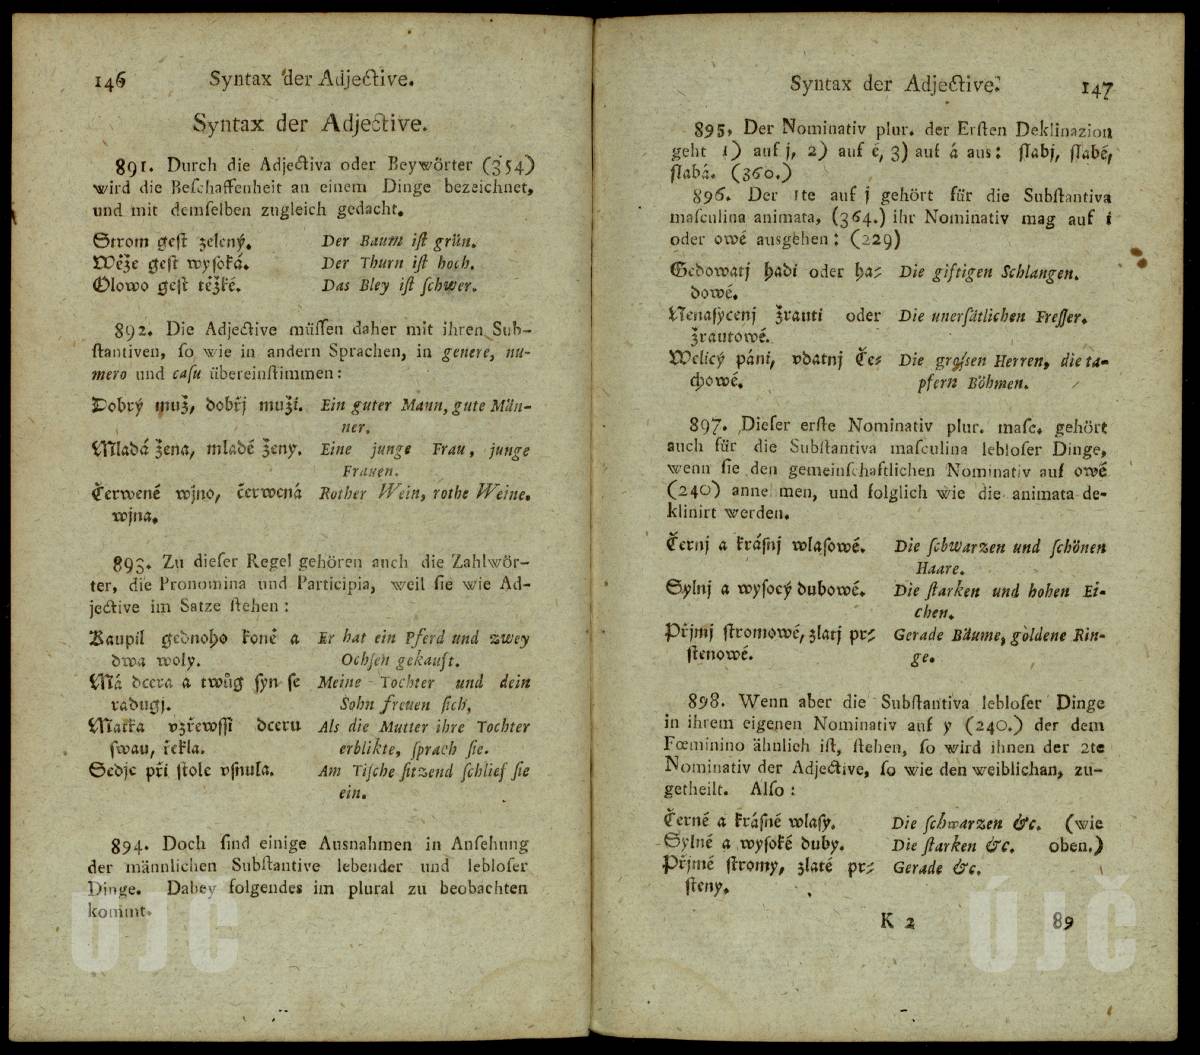 146 Syntax der Adjective.
Syntax der Adjective.
891. Durch die Adjectiva oder Beywörter (354)
wird die Beſchaffenheit an einem Dinge bezeichnet,
und mit demſelben zugleich gedacht.
Strom geſt zelený. Der Baum iſt grün.
Wěže geſt wyſoká. Der Thurn iſt hoch.
Olowo geſt těžké. Das Bley iſt ſchwer.
892. Die Adjective müſſen daher mit ihren Sub-
ſtantiven, ſo wie in andern Sprachen, in genere, nu-
mero und caſu übereinſtimmen:
Dobrý muž, dobřj muži. Ein guter Mann, gute Män-
ner.
Mladá žena, mladé ženy. Eine junge Frau, junge
Frauen.
Čerwené wjno, čerwená Rother Wein, rothe Weine.
wjna.
893. Zu dieſer Regel gehören auch die Zahlwör-
ter, die Pronomina und Participia, weil ſie wie Ad-
jective im Satze ſtehen:
Kaupil gednoho koně a Er hat ein Pferd und zwey
dwa woly. Ochſen gekauft.
Má dcera a twůg ſyn ſe Meine Tochter und dein
radugj. Sohn freuen ſich,
Matka vzřewſſi dceru Als die Mutter ihre Tochter
ſwau, řekla. erblikte, ſprach ſie.
Sedjc při ſtole vſnula. Am Tiſche ſitzend ſchlief ſie
ein.
894. Doch ſind einige Ausnahmen in Anſehung
der männlichen Subſtantive lebender und lebloſer
Dinge. Dabey folgendes im plural zu beobachten
kommt.
ÚJČ
Syntax der Adjective. 147
895, Der Nominativ plur. der Erſten Deklinazion
geht 1) auf j, 2) auf é, 3) auf á aus: ſlabj, ſlabé,
ſlabá. (360.)
896. Der 1te auf j gehört für die Subſtantiva
maſculina animata, (364.) ihr Nominativ mag auf i
oder owé ausgehen: (229)
Gedowatj hadi oder ha- Die giftigen Schlangen.
dowé.
Nenaſycenj žrauti oder Die unerſätlichen Freſſer.
žrautowé.
Welicý páni, vdatnj Če- Die groſsen Herren, die ta-
chowé. pfern Böhmen.
897. Dieſer erſte Nominativ plur. maſc. gehört
auch für die Subſtantiva maſculina lebloſer Dinge,
wenn ſie den gemeinſchaftlichen Nominativ auf owé
(240) annehmen, und folglich wie die animata de-
klinirt werden.
Černj a kráſnj wlaſowé. Die ſchwarzen und ſchönen
Haare.
Sylnj a wyſocý dubowé. Die ſtarken und hohen Ei-
chen.
Přjmj ſtromowé, zlatj pr- Gerade Bäume, goldene Rin-
ſtenowé. ge.
898. Wenn aber die Subſtantiva lebloſer Dinge
in ihrem eigenen Nominativ auf y (240.) der dem
Fœminino ähnlich iſt, ſtehen, ſo wird ihnen der 2te
Nominativ der Adjective, ſo wie den weiblichan, zu-
getheilt. Alſo:
Černé a kráſné wlaſy. Die ſchwarzen &c. (wie
Sylné a wyſoké duby. Die ſtarken &c. oben.)
Přjmé ſtromy, zlaté pr- Gerade &c.
ſteny.
K 2 89
ÚJČ